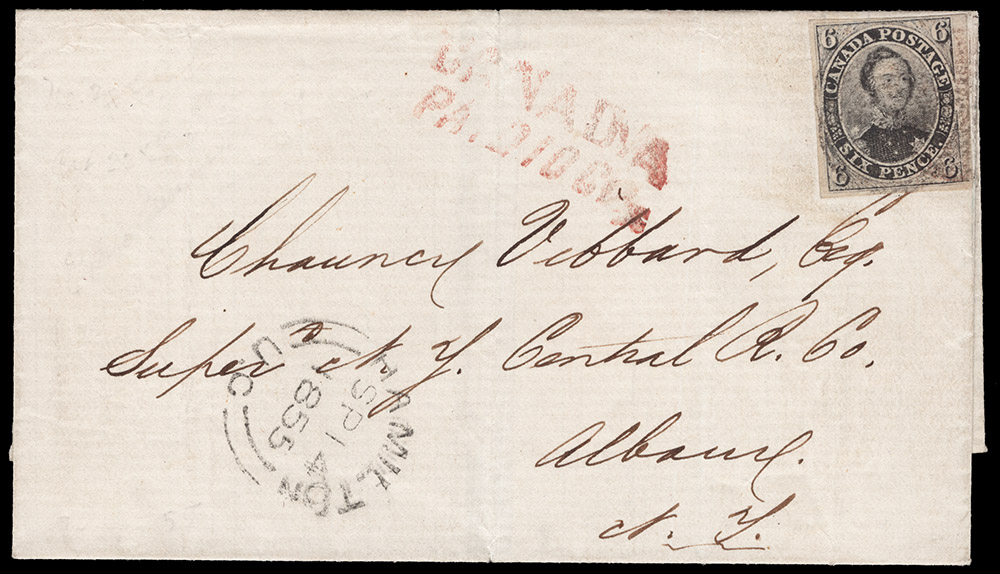 CANADA
PAID 10 Cts
6 6
CANADA POSTAGE
SIX PENCE.
6 6
Chauncey Vibbard, Esq.
Super't N. Y. Central R. Co.
Albany.
N. Y.
HAMILTON
SP 14
1855
U.C